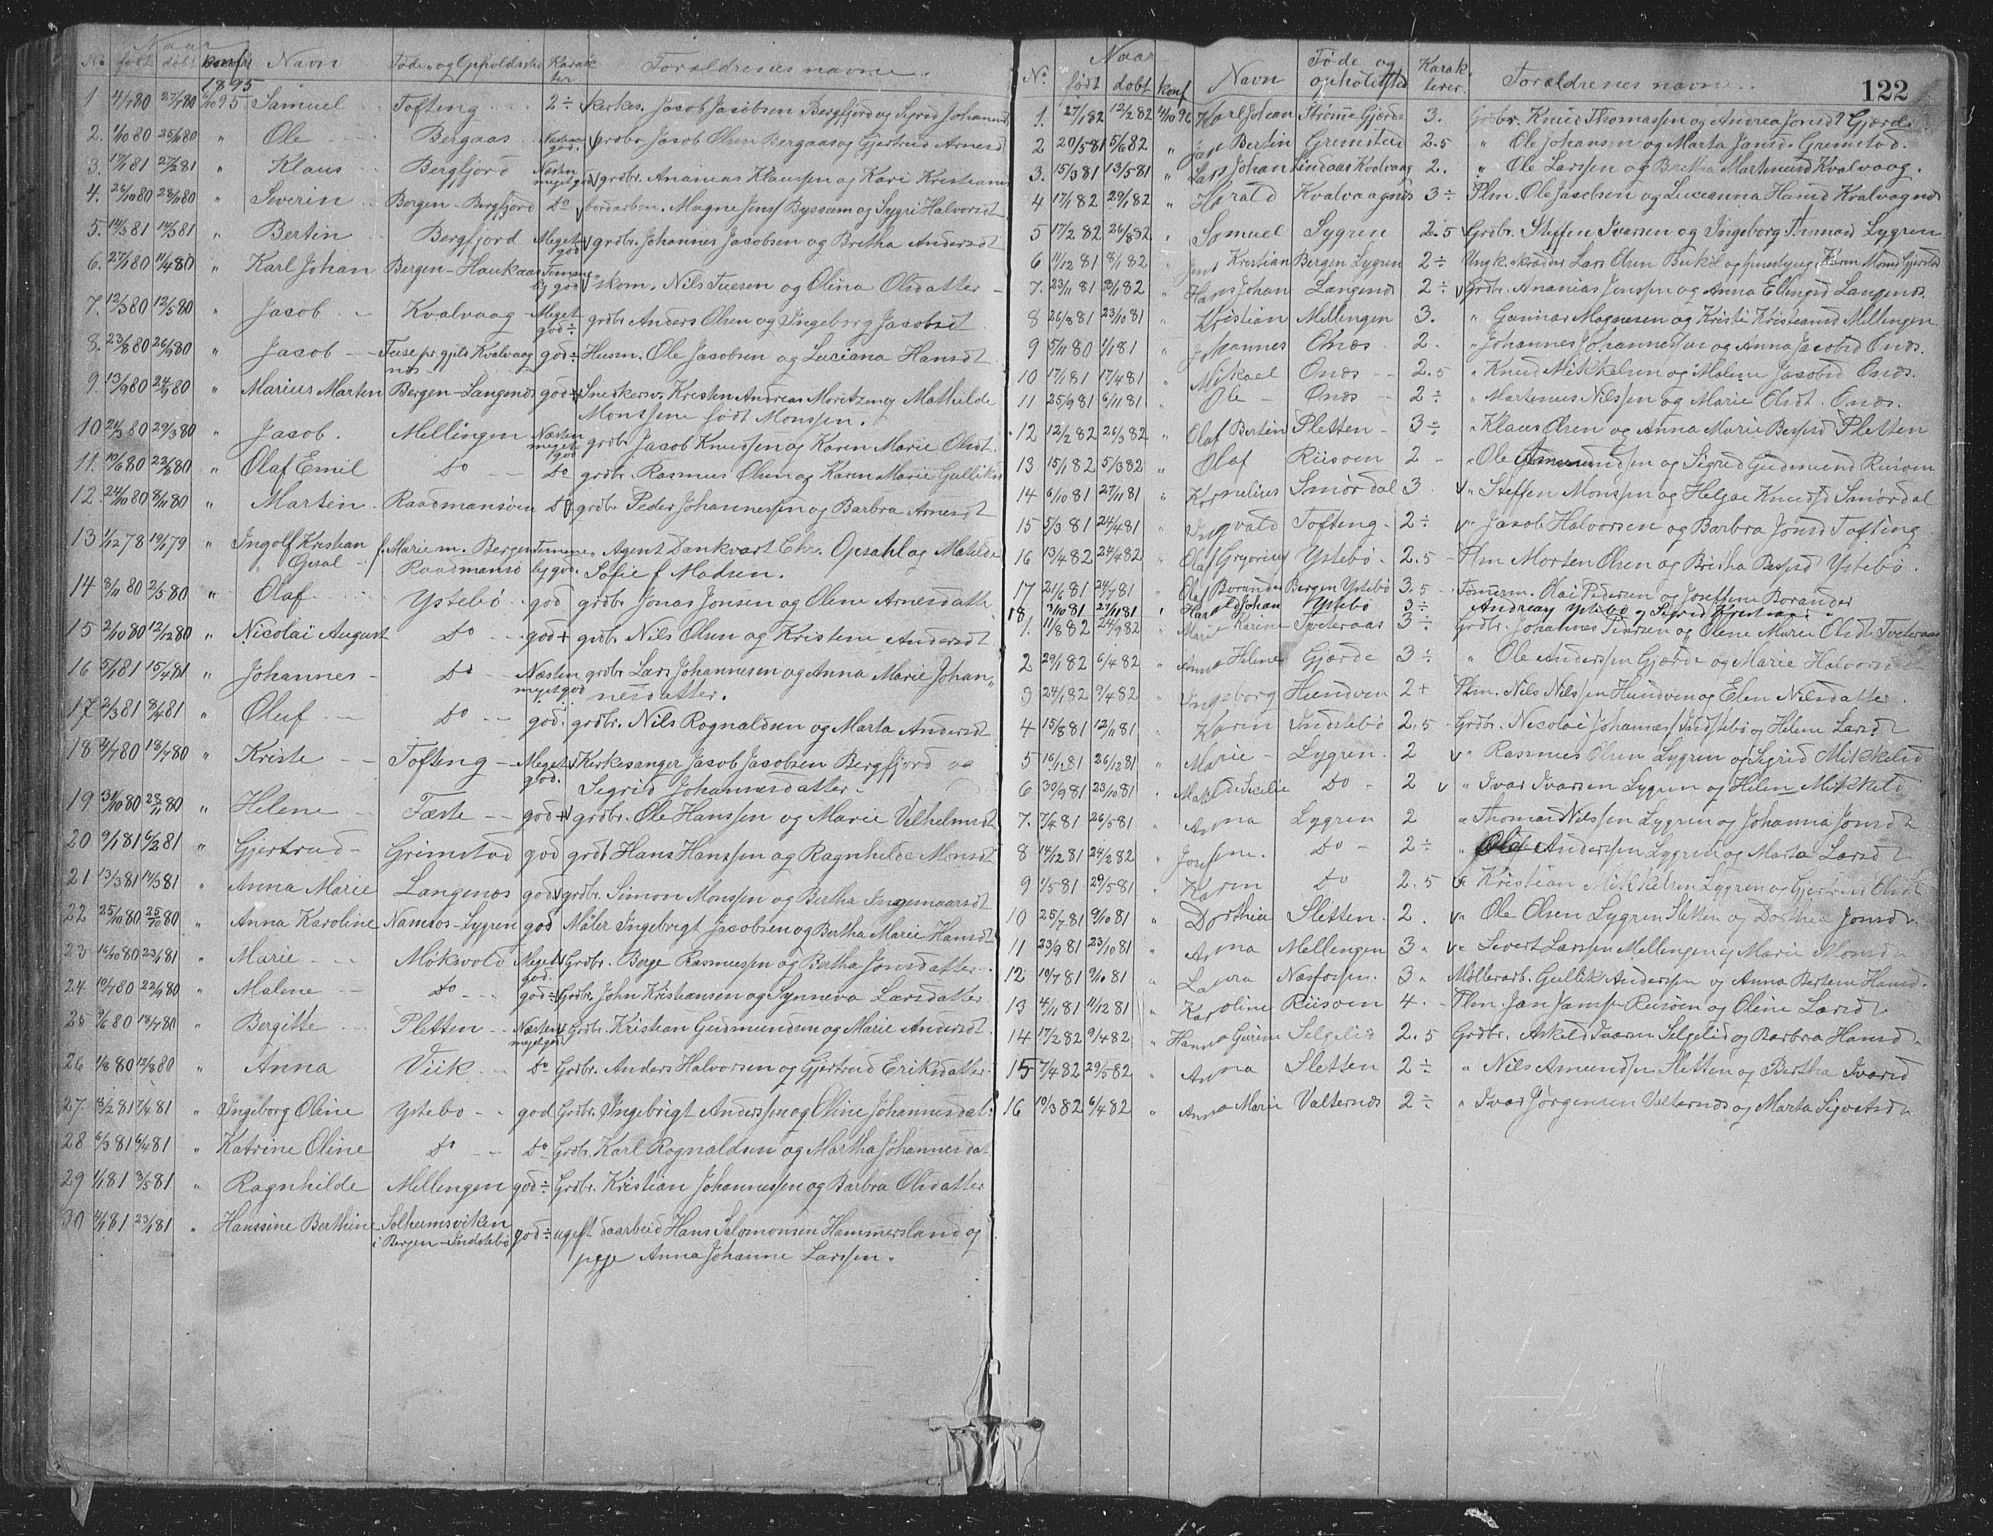 Naar
No. født døbt konf. Navn Føde- og Opholdssted Karakter Forældrenes navne.
1895
1 4/7 80 27/7 80 6/10 95 Samuel Tofting 2÷ Kirkes. Jacob Jacobsen Bergfjord og Sigrid Johannesd
2. 1/10 80 25/10 80 " Ole Bergaas Næsten god. grdbr. Jacob Olsen Bergaas og Gjertrud Arnesd
3. 17/1 81 27/2 81 " Klaus Bergfjord Næsten megetgod grdbr. Ananias Klaussen og Kari Kristians
4. 26/10 80 28/10 80 " Severin Bergen-Bergfjord Do bordarben. Magne Jens Byssem og Sygri Halvorsdt
5. 14/3 81 14/3 81 " Bertin Bergfjord Meget god grdbr. Johannes Jacobsen og Britha Andersdt
6. 27/1 80 11/4 80 " Karl Johan Bergen-Haukaas Temmelig god skom. Nils Tuesen og Olina Olsdatter
7. 12/3 80 12/5 80 " Jacob Kvalvaag Meget god÷ grdbr Anders Olsen og Ingeborg Jacobsdt
8. 23/8 80 26/9 80 " Jacob Kvalvaagnes god÷ Husm. Ole Jacobsen og Luciana Hansdt
9. 13/9 80 24/9 80 " Marius Marten Bergen-Langenæs god+ Snedkersv. Kristen Andreas Moritzen og Mathilde
Monssine født Monssen.
10 21/3 80 29/3 80 " Jacob. Mellingen Næsten meget god grdbr Jacob Knudssen og Karen Marie Olsdt
11. 19/6 80 22/8 80 " Olaf Emil Do Do grdbr. Rasmus Olsen og Karen Marie Gulliks
12 24/10 80 8/11 80 " Martin Raadmansøen Do grdbr Peder Johannessen og Barbra Arnesdt
13 1/12 78 19/1 79 " Ingolf Kristian Opsal f. Mariem. Bergen Raadmansø Temmelig god. Agent Dankvart Chr. Opsahl og Matilde
Sofie f Madsen.
14 8/11 80 2/5 80 " Olaf Ystebø god grdbr Jonas Jonsen og Olene Arnesdatte
15 2/10 80 12/12 80 " Nicolai August Do god+ grdbr. Nils Olsen og Kristine Andersdt
16 5/1 81 15/4 81 " Johannes Do Næsten megetgod grdbr Lars Johannesen og Anna Marie Johan
nesdatter.
17 2/3 81 8/4 81 " Oluf Do god. grdbr. Nils Rognaldsen og Marta Andersdt
18 4/7 80 18/7 80 " Kriste Tofting Meget god. Kirkesanger Jacob Jacobsen Bergfjord og
Sigrid Johannesdatter.
19 31/10 80 28/11 80 " Helene Fæste god+ grdbr. Ole Hanssen og Marie Vilhelmsdt
20 9/1 81 6/2 81 " Gjertrud Grimstad god grdb Hans Hanssen og Ragnhilde Monsdt
21 13/3 81 14/3 81 " Anna Marie Langenæs god grdbr. Simon Monssen og Bertha Ingemaarsdt
22 25/10 80 25/10 80 " Anna Karoline Namsos-Lygren god Maler Ingebrigt Jacobsen og Bertha Marie Hansdt
23 19/10 80 23/1 81 " Marie Mökevold Meget god. Grdbr. Berge Rasmussen og Bertha Jonsdatter
24 19/7 80 22/9 80 " Malene Do god÷ Grdbr. John Kristiansen og Synneva Larsdatter
25 9/6 80 18/7 80 " Bergitte Pletten Næsten megetgod Grdbr. Kristian Gudmundsen og Marie Andersdt.
26 1/8 80 12/8 80 " Anna Viik Do Grdbr. Anders Halvorsen og Gjertrud Eriksdatter
27. 13/2 81 7/4 81 " Ingeborg Oline Ystebo god Grdbr. Ingebrigt Anderssen og Oline Johannesdat
28 6/3 81 6/4 81 " Katrine Oline Do Do Grdbr. Karl Rognaldsen og Martha Johannesdat
29 1/1 81 3/5 81 " Ragnhilde Mellingen god÷ Grdbr. Kristian Johannessen og Barbra Olsdatter
30 4/1 81 23/1 81 " Hanssine Berthine Solheimsviken i Bergen-Indstebø god÷ ugift daarbeid Hans Salomonsen Hammersland og
pige Anna Johanne Larssen.
122
Naar
No. født døbt konf Navn Føde og opholdsted Karakterer. Forældrenes navne.
1. 27/1 82 12/2 82 4/10 96 Karl Johan Strømme Gjerde 3. Grdbr. Knud Thomassen og Andrea Jonsdt Gjerde
2 20/5 81 5/6 82 " Bertin Gremstad 2.5 " Ole Johansen og Marta Jansd. Gremstad.
3. 15/3 81 13/5 81 " Lars Johan Lindaas Kvalvaag 2. " Ole Larssen og Bretha Kvalvaag.
4 17/1 82 29/1 82 " Harald Kvalvaagnes 3÷ Plm. Ole Jacobsen og Lucianna Hansd Kvalvagnes
5 17/2 82 26/3 82 " Samuel Lygren 2.5 Grdbr. Steffen Ivarsen og Ingeborg Thomasd Lygren
6 11/12 81 8/1 82 " Jens Kristian Bergen Lygren 2÷ Ungk. skræder Lars Olsen
7. 23/11 81 29/1 82 " Hans Johan Langenæs 2÷ Grdbr. Ananias Jenssen og Anna Ellingsd Langenæs.
8 26/8 81 23/10 81 " Kristian Mellingen 3. " Gunnar Magnesen og Kristi Kristiansd Mellingen
9 5/11 80 1/1 81 " Johannes Onæs 2. " Johannes Johannessen og Anna Jacobsd Onæs.
10 17/1 81 17/4 81 " Mikael Onæs 2.5 " Knud Mikkelsen og Malene Jacobsd Onæs.
11 25/9 81 6/11 81 " Ole Onæs 2÷ " Martenus Nilssen og Marie Olsdt. Onæs.
12 12/2 82 26/3 82 " Olaf Bertin Pletten 3÷ " Klaus Olsen og Anna Marie Bersd Pletten
13 15/1 82 5/3 82 " Olaf Riisøen 2 - " Ole Amundssen og Sigrid Gudmund Riisøen
14 6/10 81 27/11 81 " Kornelius Smørdal 3 " Steffen Monssen og Helga Knudsd Smørdal
15 5/3 81 24/4 81 " Ingvald Tofting 2÷ " Jacob Halvorsen og Barbra Jonsd Tofting
16 13/4 82 24/4 82 " Olaf Grygorius Ystebø 2.5 Plm Morten Olsen og Britha Bersd Ystebø.
17 21/6 81 24/7 81 " Olaf Borander Bergen Ystebø 3.5 Tømerm. Olai Pedersen og Josefine Borander
18. 3/10 81 27/11 81 " Harald Johan Ystebø 3÷ Andreas Ystebø og Sigrid Kristians
1. 11/8 82 24/9 82 " Marie Karine Tveteraas 3÷ Grdbr. Johannes Ivarsen og Olene Marie Olsdt Tveteraas
2 29/1 82 6/4 82 " Anna Helene Gjærde 3÷ " Ole Anderssen Gjærde og Marie Halvorsd
3 24/1 82 9/4 82 " Ingeborg Hundven 2+ Plm. Nils Nilssen Hundven og Elen Nilsdatter
4 15/8 81 12/11 81 " Karin Indstebø 2.5 Grdbr. Nicolai Johannes Indstebø og Helene Larsd
5 16/12 81 26/12 81 " Marie Lygren 2 " Rasmus Olsen Lygren og Sigrid Mikkelsd
6 30/9 81 23/10 81 " Matilde Secilie Do 2 " Ivar Ivarsen Lygren og Helen Mikkelsd
7. 7/4 81 26/5 81 " Anna Lygren 2 " Thomas Nilssen Lygren og Johanna Jonsd
8 14/12 81 24/2 82 " Josefine. Do 2÷ " Anderssen Lygren og Marta Larsd
9 1/5 81 29/5 81 " Karen Do 2.5 " Kristian Mikkelsen Lygren og Gjertrud Olsd
10 25/7 81 9/10 81 " Dorthea Sletten 2. " Ole Olsen Lygren Sletten og Dorthea Jonsd
11 23/9 81 23/10 81 " Anna Mellengen 3 " Sivert Larssen Mellengen og Marie Monsd
12 19/7 81 9/10 81 " Laura Næstøssen. 3 Møllerarb. Gullik Anderssen og Anna Bertine Hansd
13 4/11 81 11/12 81 " Karoline Riisøen 4 Plm Jan Jansen Riisøen og Oline Larsd
14 17/2 82 9/4 82 " Hanna Gurine Selgelid 2.5 Grdbr. Askeld Ivarsen Selgelid og Barbra Hansd
15 7/4 82 29/5 82 " Anna Sletten 2÷ " Nils Amundsen Sletten og Bertha Ivarsd
16 10/3 82 6/4 82 " Anna Marie Valternæs 2÷ " Ivar Jørgensen Valternæs og Marta Sigvatsd